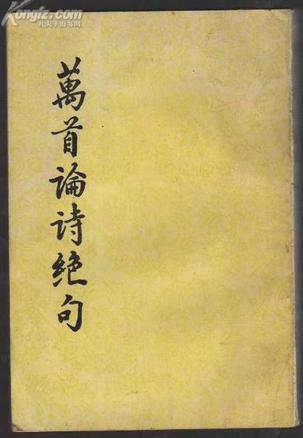 Kongfz.com
孔夫子旧书网
萬首論诗绝句